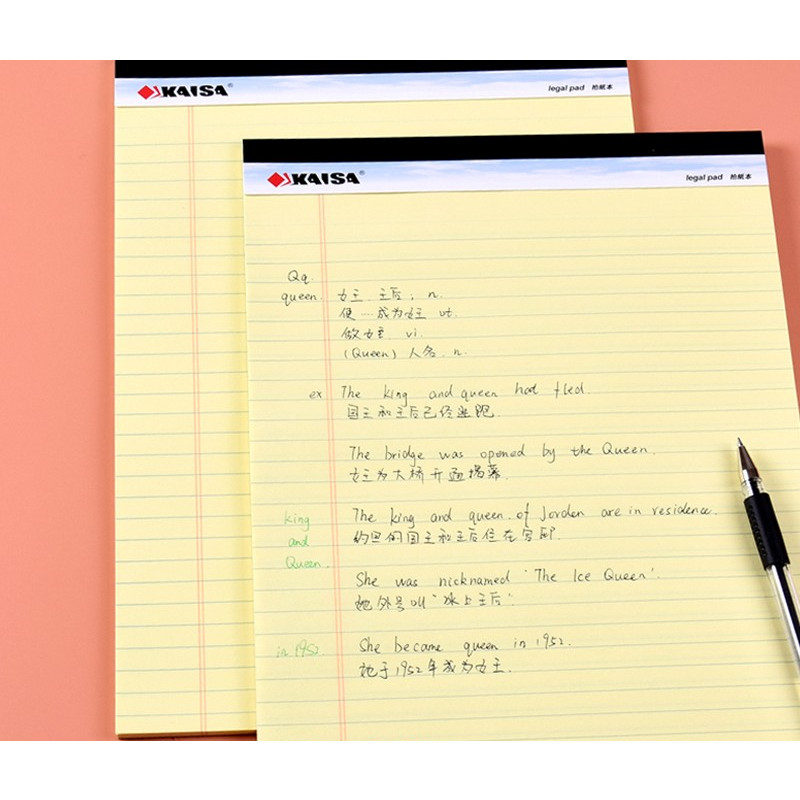 KAISA®
legal pad 拍纸本
KAISA®
legal pad 拍纸本
Qq.
queen. 女王. 王后; n.
使…成为女王 vt.
做女王 vi.
(Queen) 人名. n.
ex The king and queen had fled.
国王和王后已经逃跑.
The bridge was opened by the Queen.
女王为大桥开通揭幕.
king
and
Queen.
The king and queen of Jordan are in residence.
约旦的国王和王后住在宫邸.
She was nicknamed 'The Ice Queen'.
她外号叫'冰上王后'.
in 1952. She became queen in 1952.
她于1952年成为女王.